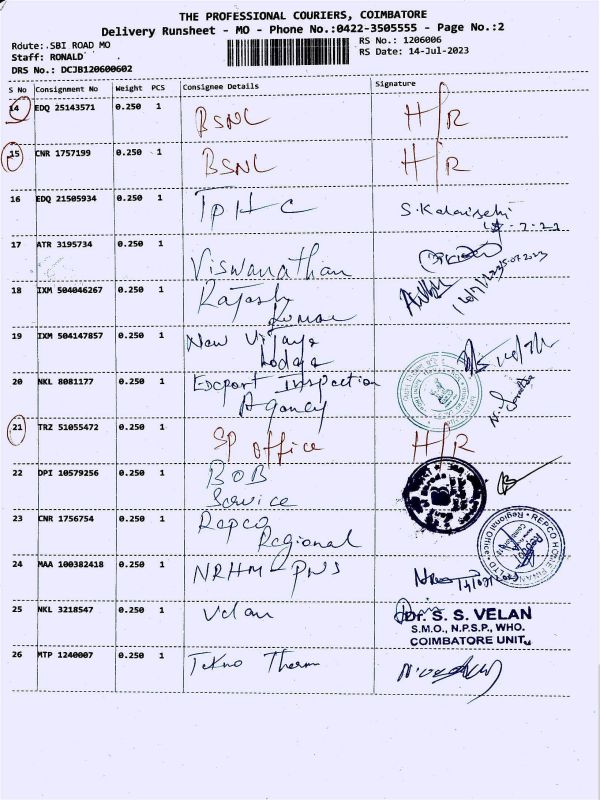 THE PROFESSIONAL COURIERS, COIMBATORE
Delivery Runsheet - MO - Phone No.:0422-3505555 - Page No.:2
Route:.SBI ROAD MO
RS No.: 1206006
Staff: RONALD
RS Date: 14-Jul-2023
DRS No.: DCJB120600602
S No Consignment No Weight PCS Consignee Details Signature
14 EDQ 25143571 0.250 1 BSNL H/R
15 CNR 1757199 0.250 1 BSNL H/R
16 EDQ 21505934 0.250 1 TPHC
17 ATR 3195734 0.250 1 Viswanathan
18 IXM 504046267 0.250 1 Rajesh
Kumar
19 IXM 504147857 0.250 1 New Vijaya
20 NKL 8081177 0.250 1 Export Inspection
Agency
21 TRZ 51055472 0.250 1 SP office H/R
22 DPI 10579256 0.250 1 BOB
Service
23 CNR 1756754 0.250 1 Repco
Regional
REPCO HOME FINANCE LTD
Regional Office
24 MAA 100382418 0.250 1 NRHM - PNS
25 NKL 3218547 0.250 1 Velan
Dr. S. S. VELAN
S.M.O., N.P.S.P., WHO.
COIMBATORE UNIT
26 MTP 1240007 0.250 1 Tekno Therm